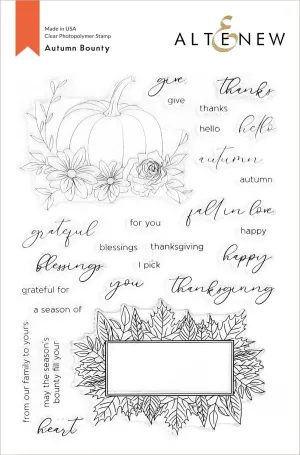 Made in USA
Clear Photopolymer Stamp
Autumn Bounty
ALTENEW
give
thanks
give
thanks
hello
hello
autumn
autumn
fall in love
grateful
for you
happy
blessings
thanksgiving
happy
blessings
I pick
grateful for
you
thanksgiving
a season of
from our family to yours
may the season's
bounty fill your
heart